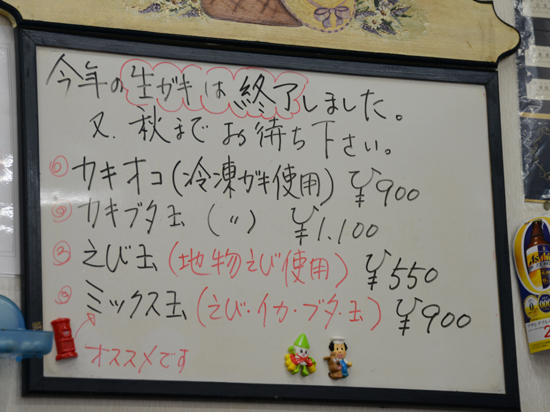 今年の生ガキは終了しました。
又、秋までお待ち下さい。
カキオコ(冷凍ガキ使用) ¥900
カキブタ玉 (〃) ¥1.100
えび玉(地物えび使用) ¥550
ミックス玉(えび・イカ・ブタ・玉) ¥900
オススメです